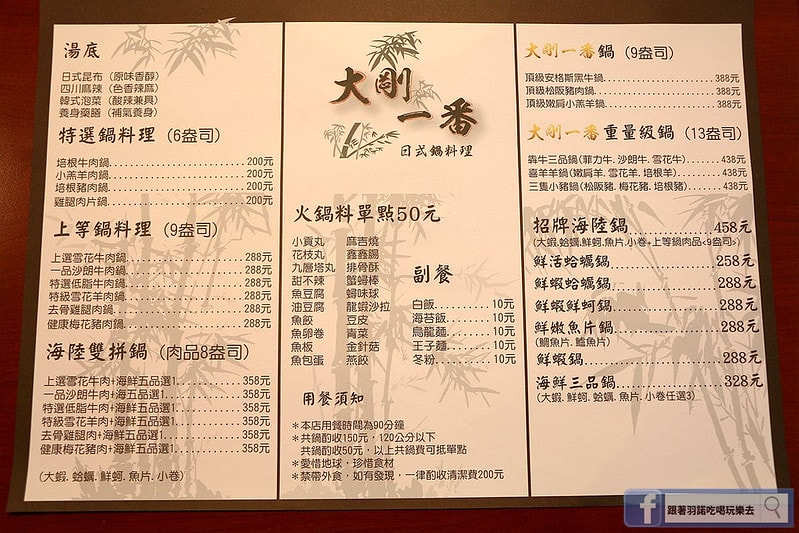 湯底
日式昆布（原味香醇）
四川麻辣（色香辣麻）
韓式泡菜（酸辣兼具）
養身藥膳（補氣養身）
特選鍋料理（6盎司）
培根牛肉鍋........................200元
小羔羊肉鍋........................200元
培根豬肉鍋........................200元
雞腿肉片鍋........................200元
上等鍋料理（9盎司）
上選雪花牛肉鍋........................288元
一品沙朗牛肉鍋........................288元
特選低脂牛肉鍋........................288元
特級雪花羊肉鍋........................288元
去骨雞腿肉鍋........................288元
健康梅花豬肉鍋........................288元
海陸雙拼鍋（肉品8盎司）
上選雪花牛肉+海鮮五品選1............358元
一品沙朗牛肉+海五品選1............358元
特選低脂牛肉+海鮮五品選1............358元
特級雪花羊肉+海鮮五品選1............358元
去骨雞腿肉+海鮮五品選1............358元
健康梅花豬肉+海鮮五品選1............358元
(大蝦. 蛤蠣. 鮮蚵. 魚片. 小卷)
大剛
一番
日式鍋料理
火鍋料單點50元
小貢丸 麻吉燒
花枝丸 鑫鑫腸
九層塔丸 排骨酥
甜不辣 蟹蟳棒
魚豆腐 蟳味球
油豆腐 龍蝦沙拉
魚餃 豆皮
魚卵卷 青菜
魚板 金針菇
魚包蛋 燕餃
副餐
白飯............10元
海苔飯............10元
烏龍麵............10元
王子麵............10元
冬粉............10元
用餐須知
＊本店用餐時間為90分鐘
＊共鍋酌收150元，120公分以下
共鍋酌收50元，以上共鍋費可抵單點
＊愛惜地球，珍惜食材
＊禁帶外食，如有發現，一律酌收清潔費200元
大剛一番鍋（9盎司）
頂級安格斯黑牛鍋........................388元
頂級松阪豬肉鍋........................388元
頂級嫩肩小羔羊鍋........................388元
大剛一番重量級鍋（13盎司）
犇牛三品鍋(菲力牛. 沙朗牛. 雪花牛)............438元
喜羊羊鍋(嫩肩羊. 雪花羊. 培根羊)............438元
三隻小豬鍋(松阪豬. 梅花豬. 培根豬)............438元
招牌海陸鍋............458元
(大蝦. 蛤蠣. 鮮蚵. 魚片. 小卷+上等鍋肉品<9盎司>)
鮮活蛤蠣鍋............258元
鮮蝦蛤蠣鍋............288元
鮮蝦鮮蚵鍋............288元
鮮嫩魚片鍋............288元
(鯛魚片. 鱸魚片)
鮮蝦鍋............288元
海鮮三品鍋............328元
(大蝦. 鮮蚵. 蛤蠣. 魚片. 小卷任選3)
f 跟著羽諾吃喝玩樂去